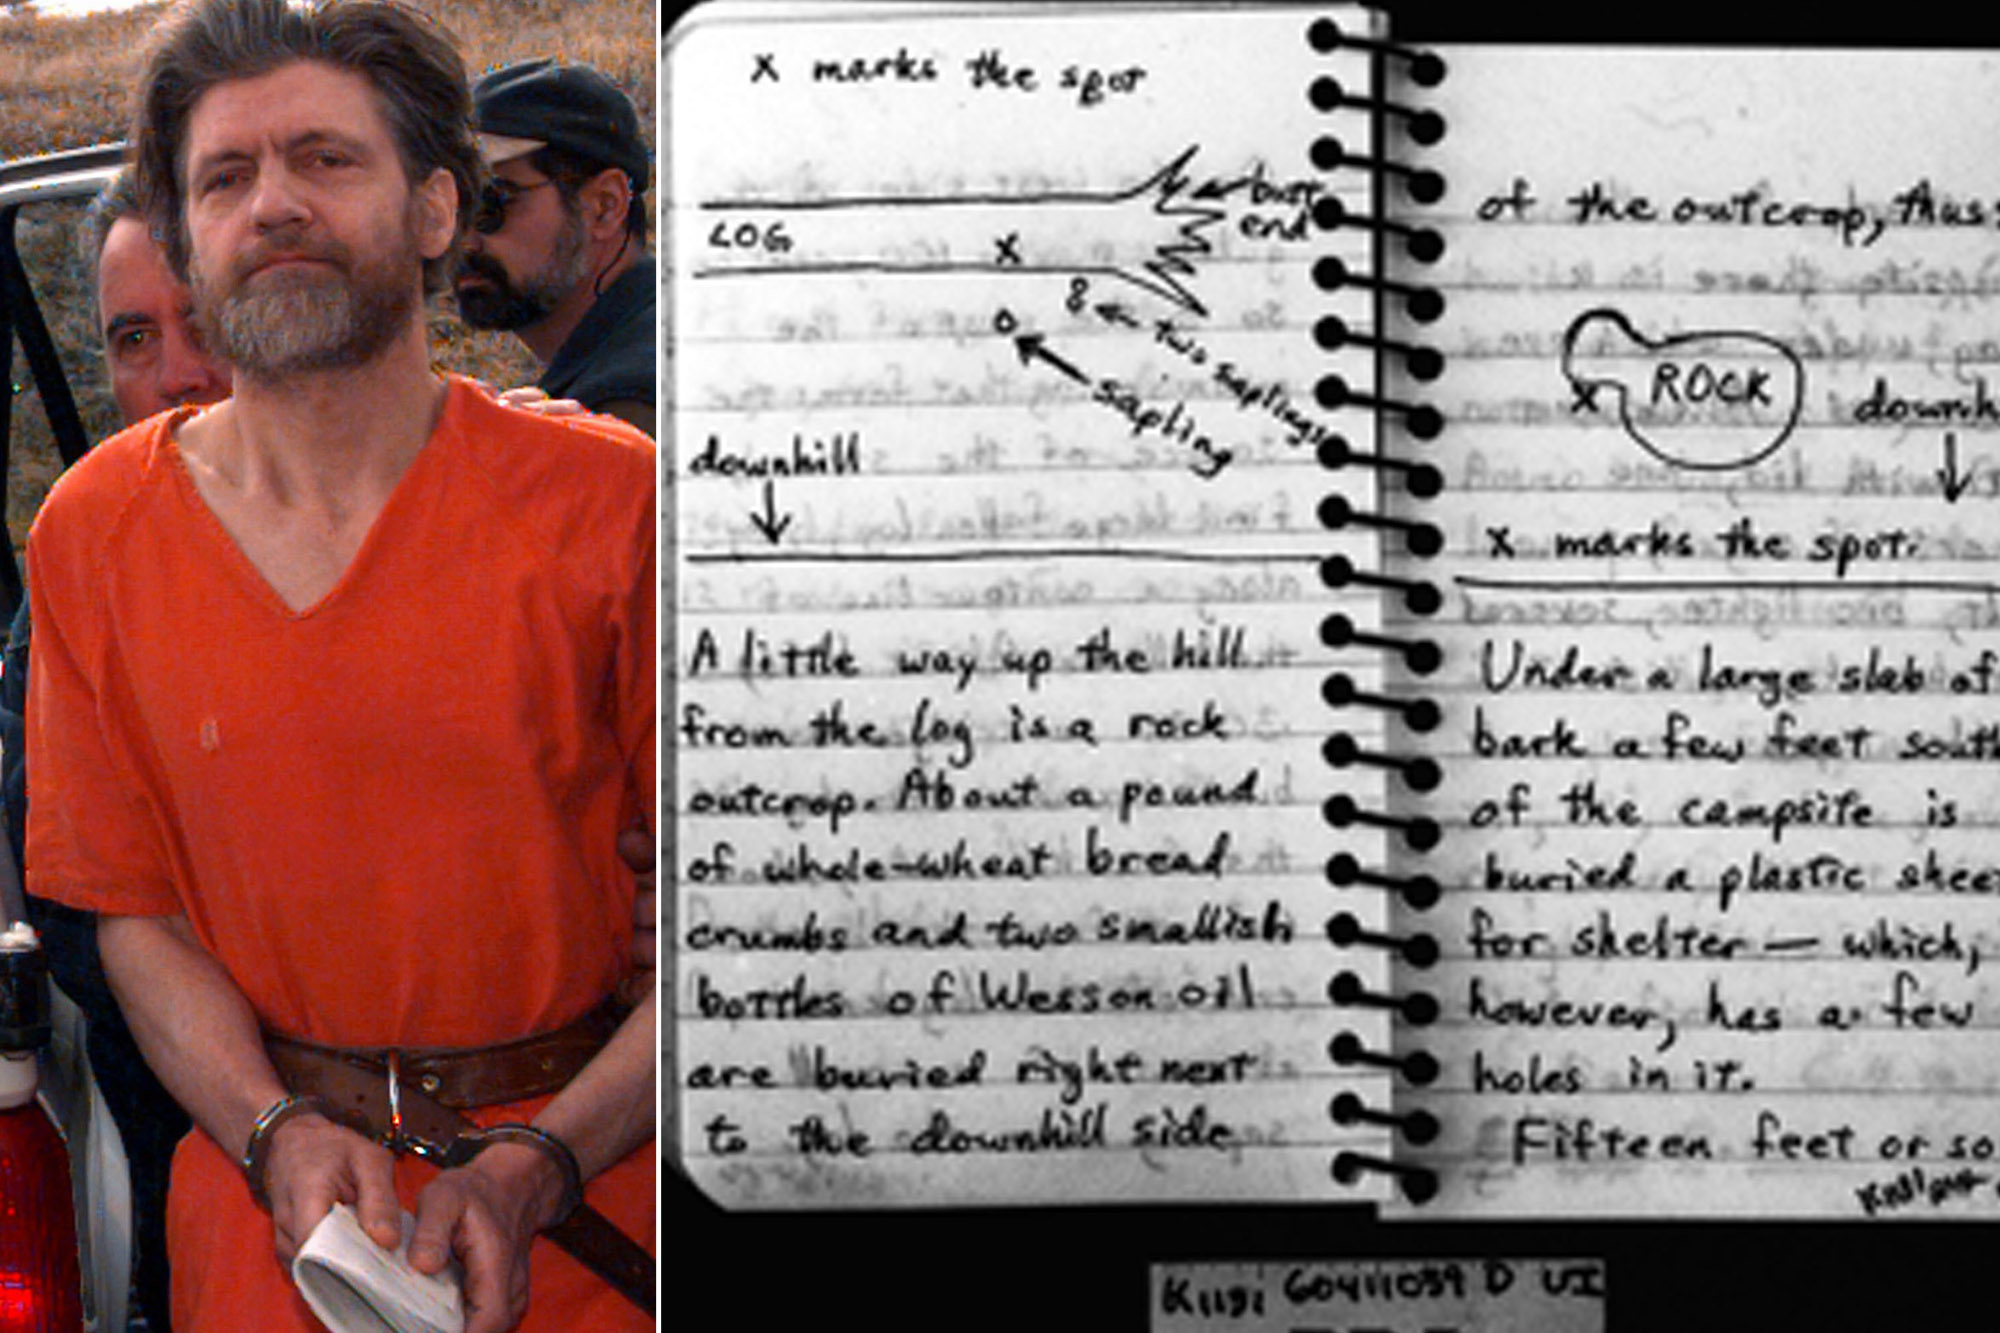 X marks the spot
butt
end
LOG
X
two saplings
sapling
downhill
A little way up the hill
from the log is a rock
outcrop. About a pound
of whole-wheat bread
crumbs and two smallish
bottles of Wesson oil
are buried right next
to the downhill side
of the outcrop, thus:
ROCK
X
downh
X marks the spot.
Under a large slab of
bark a few feet south
of the campsite is
buried a plastic shee
for shelter — which,
however, has a few
holes in it.
Fifteen feet or so